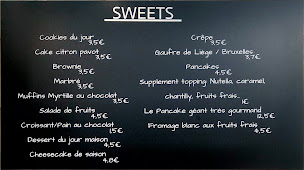 SWEETS
Cookies du jour
3,5€
Cake citron pavot
3,5€
Brownie
3,5€
Marbré
3,5€
Muffins Myrtille au chocolat
3,5€
Salade de fruits
4,5€
Croissant/Pain au chocolat
1,5€
Dessert du jour maison
4,5€
Cheesecake de saison
4,8€
Crêpe
3,5€
Gaufre de Liége / Bruxelles
3,7€
Pancakes
4,5€
Supplement topping: Nutella, caramel,
chantilly, fruits frais...
1€
Le Pancake géant trés gourmand
12,5€
1Fromage blanc aux fruits frais
4,5€